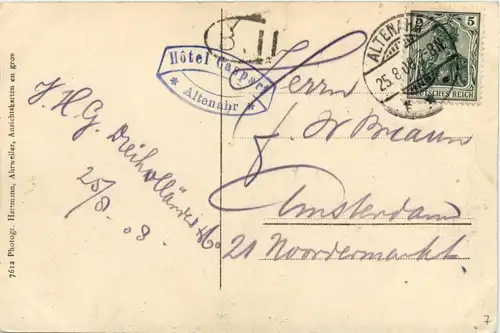 7612 Photogr. Hartmann, Ahrweiler, Ansichtskarten en gros
B. II
Hôtel Caspari
* Altenahr *
ALTENAHR
25.8.08 8-9N.
5
DEUTSCHES REICH
J. H. G.
25/8 - 08.
Herrn
J.
Amsterdam
20 Noordermarkt
7